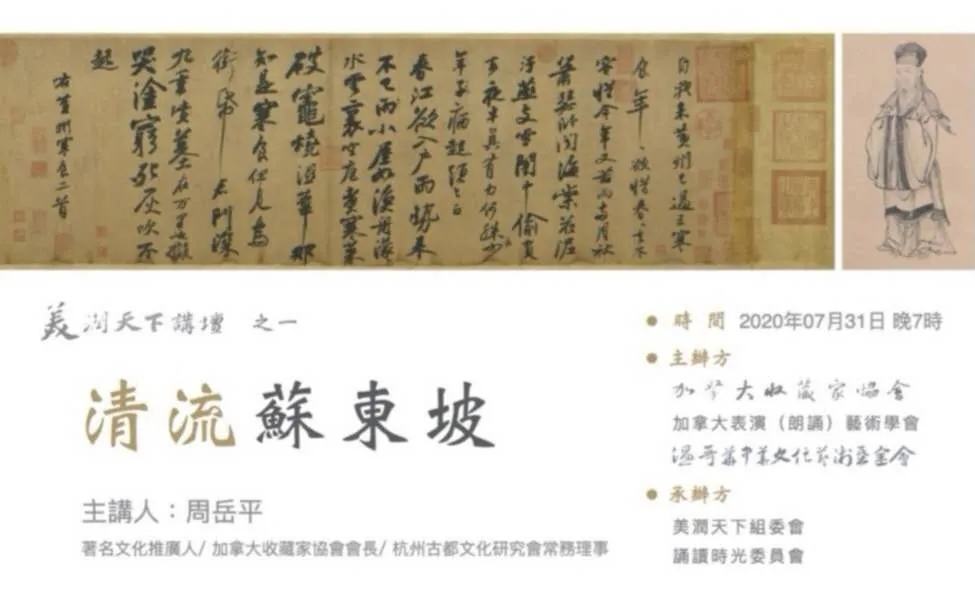 自我來黃州已過三寒
食年〻欲惜春〻去不
容惜今年又苦雨兩月秋
蕭瑟臥聞海棠花泥
汙燕支雪闇中偷負
去夜半真有力何殊少
年子病起頭已白
春江欲入戶雨勢來
不已雨小屋如漁舟濛〻
水雲裏空庖煮寒菜
破竈燒濕葦那
知是寒食但見烏
銜帋君門深
九重墳墓在萬里也擬
哭塗窮死灰吹不
起
右黃州寒食二首
美潤天下講壇 之一
清流蘇東坡
主講人:周岳平
著名文化推廣人/ 加拿大收藏家協會會長/ 杭州古都文化研究會常務理事
時間 2020年07月31日 晚7時
主辦方
加拿大收藏家協會
加拿大表演(朗誦)藝術學會
溫哥華中華文化藝術基金會
承辦方
美潤天下組委會
誦讀時光委員會